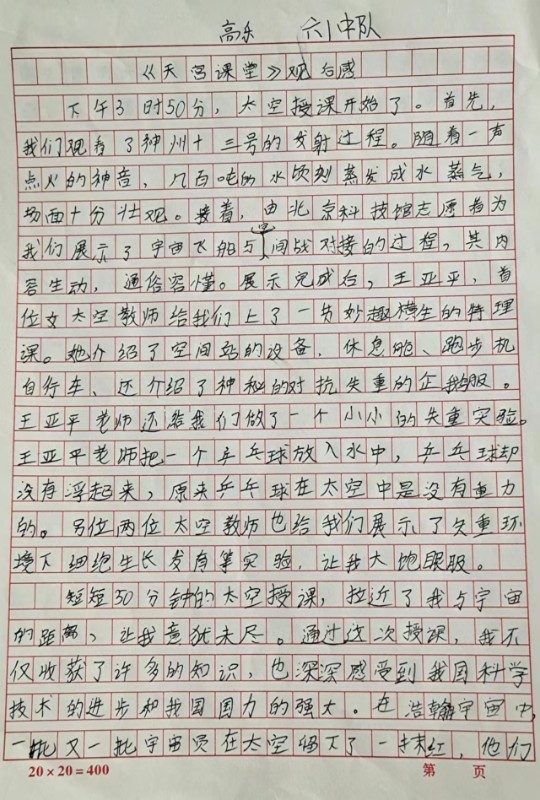 高乐 六1中队
《天宫课堂》观后感
下午3时50分，太空授课开始了。首先，
我们观看了神州十三号的发射过程。随着一声
点火的神音，几百吨的水顷刻蒸发成水蒸气，
场面十分壮观。接着，由北京科技馆志愿者为
我们展示了宇宙飞船与空间战对接的过程，其内
容生动，通俗容懂。展示完成后，王亚平，首
位女太空教师给我们上了一货妙趣横生的特理
课。她介绍了空间站的设备、休息舱、跑步机
自行车、还介绍了种秘的对抗失重的企鹅服。
王亚平老师还给我们做了一个小小的失重实验。
王亚平老师把一个乒乓球放入水中，乒乓球却
没有浮起来，原来乒乓球在太空中是没有重力
的。另位两位太空教师也给我们展示了欠重环
境下细胞生长发育等实验，让我大饱眼服。
短短50分钟的太空授课，拉近了我与宇宙
的距离，让我意犹未尽。通过这次授课，我不
仅收获了许多的知识，也深深感受到我国科学
技术的进步和我国国力的强大。在浩翰宇宙中，
一批又一批宇宙员在太空留下了一抹红，他们
20×20=400 第 页